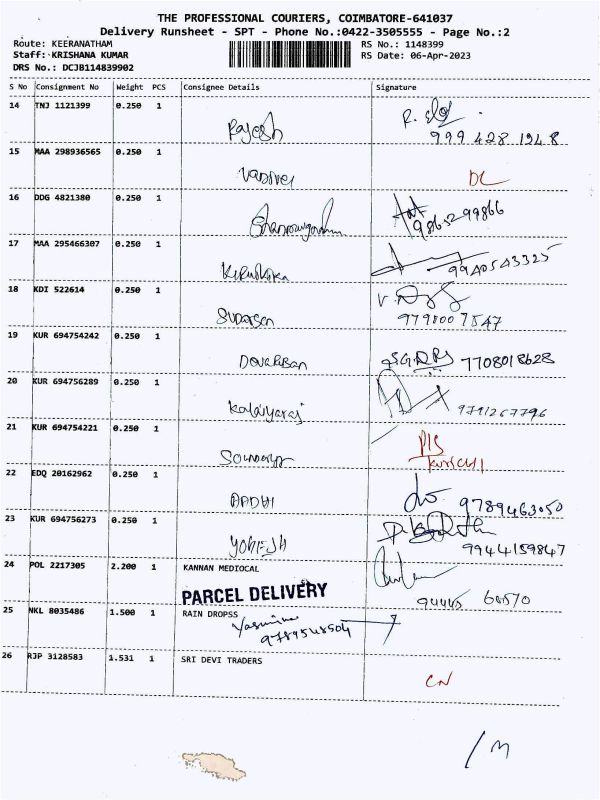 THE PROFESSIONAL COURIERS, COIMBATORE-641037
Delivery Runsheet - SPT - Phone No.:0422-3505555 - Page No.:2
Route: KEERANATHAM RS No.: 1148399
Staff: KRISHANA KUMAR RS Date: 06-Apr-2023
DRS No.: DCJB114839902
S No Consignment No Weight PCS Consignee Details Signature
14 TNJ 1121399 0.250 1
Rajesh 999 428 1248
15 MAA 298936565 0.250 1
Vadivel DL
16 DDG 4821380 0.250 1
9865299866
17 MAA 295466307 0.250 1
Kiruthika 9940543325
18 KDI 522614 0.250 1
Sudarsan 9798007547
19 KUR 694754242 0.250 1
Devakiban 7708018628
20 KUR 694756289 0.250 1
Kalaiyarasi 9791267796
21 KUR 694754221 0.250 1
22 EDQ 20162962 0.250 1
9789463050
23 KUR 694756273 0.250 1
YOGESH 9944159847
24 POL 2217305 2.200 1 KANNAN MEDIOCAL
PARCEL DELIVERY
25 NKL 8035486 1.500 1 RAIN DROPSS
Yasmine
9789548504
26 RJP 3128583 1.531 1 SRI DEVI TRADERS
CN